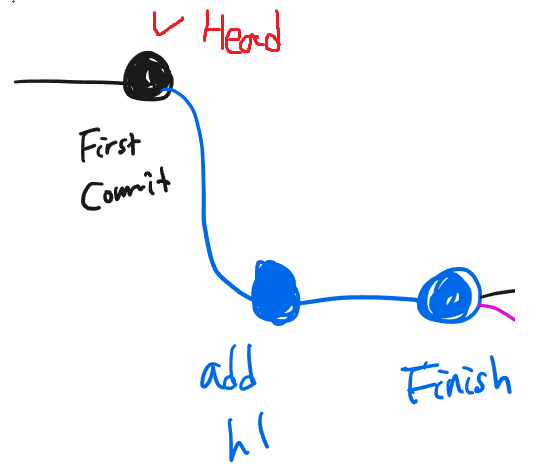 Head
First
Commit
add
h1
Finish